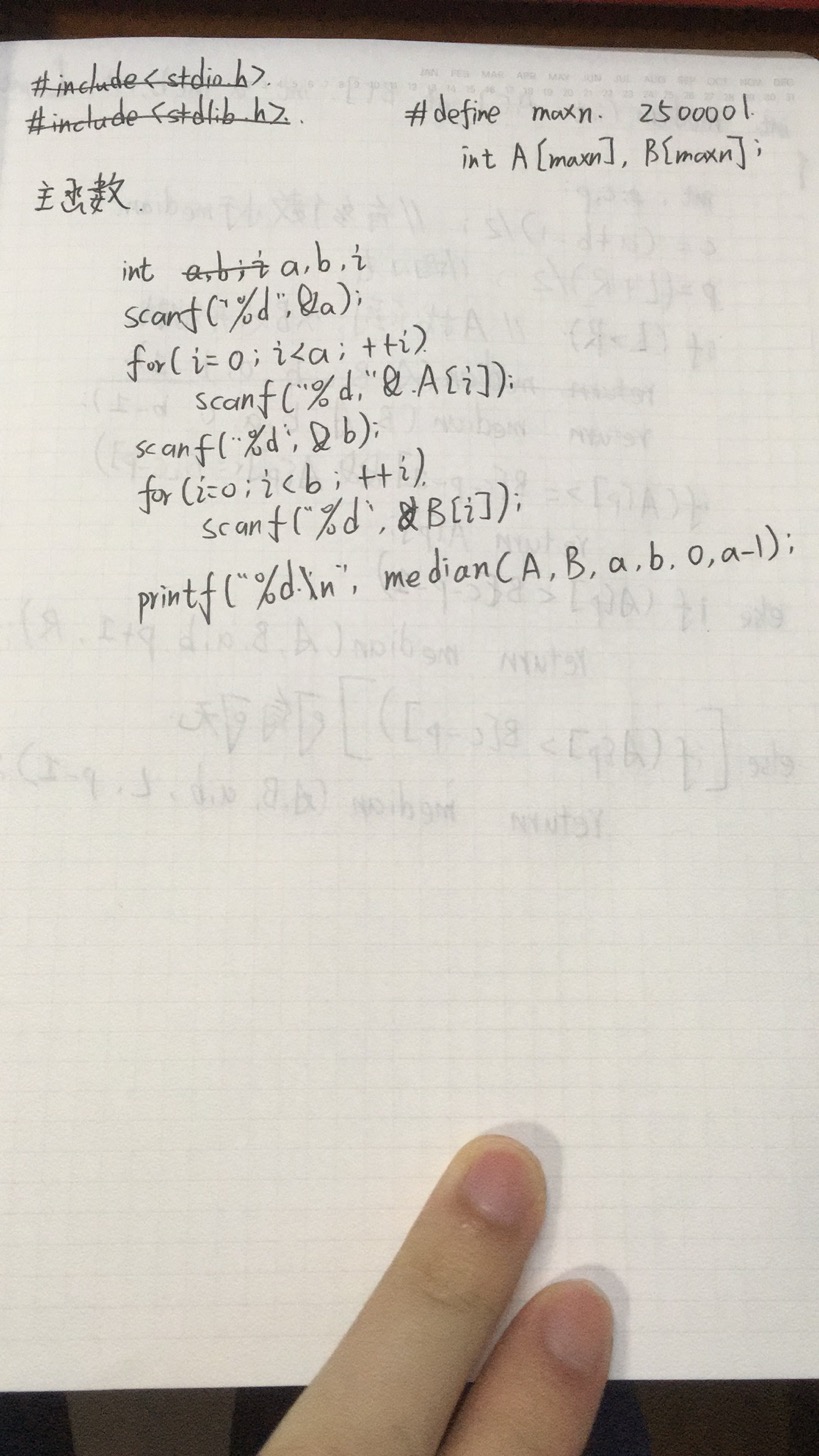 #include<stdio.h>.
#include<stdlib.h>.
#define maxn. 2500001.
int A[maxn], B[maxn];
主函数.
int a,b,i a,b,i
scanf("%d",&a);
for(i=0;i<a;++i)
scanf("%d,"&.A[i]);
scanf("%d",&b);
for(i=0;i<b;++i)
scanf("%d",&B[i]);
printf("%d.\n", median(A,B,a,b,0,a-1);